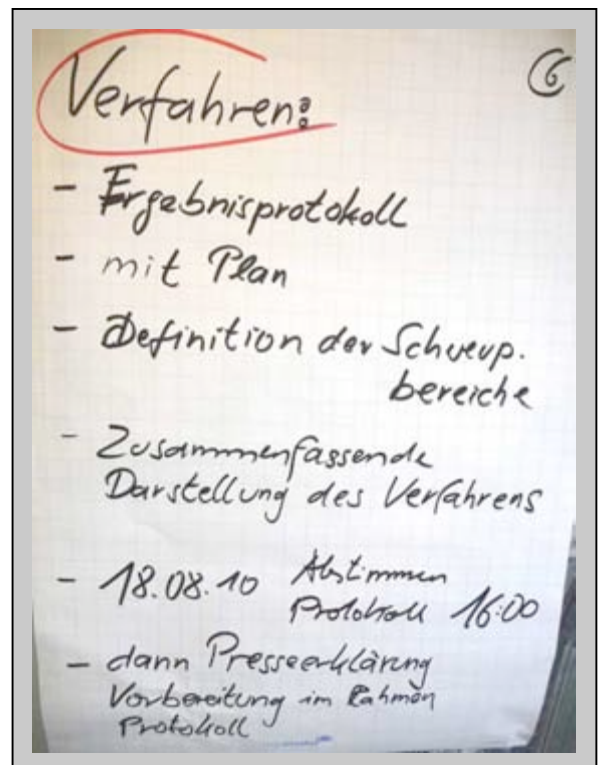 Verfahren:
6
- Ergebnisprotokoll
- mit Plan
- Definition der Schwerp.
bereiche
- Zusammenfassende
Darstellung des Verfahrens
- 18.08.10 Abstimmen
Protokoll 16:00
- dann Presseerklärung
Vorbereitung im Rahmen
Protokoll